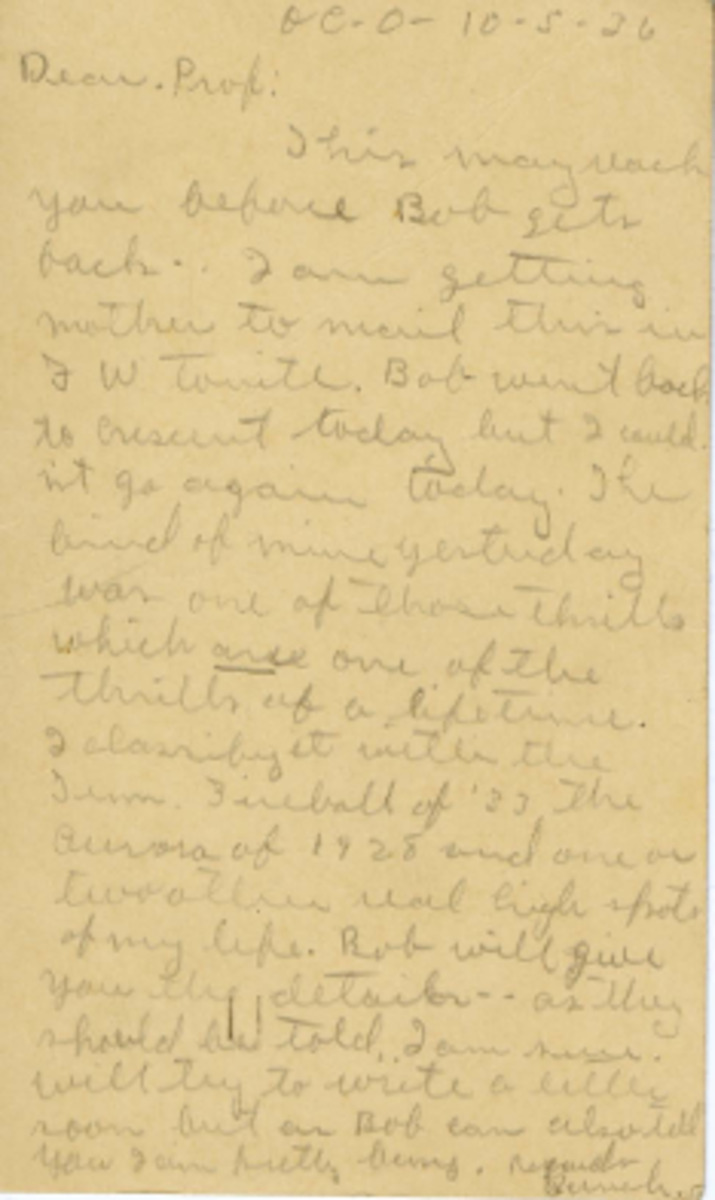 OC-O- 10-5-36
Dear. Prof:
This may reach
you before Bob gets
back-- I am getting
mother to mail this in
F W tonite. Bob went back
to Crescent today but I could
n't go again today. The
find of mine yesterday
was one of those thrills
which are one of the
thrills of a lifetime.
I classify it with the
Tenn. Fireball of '33, The
Aurora of 1928 and one or
two other real high spots
of my life. Bob will give
you the details-- as they
should be told, I am sure.
will try to write a letter
soon but as Bob can also tell
you I am pretty busy. Regards